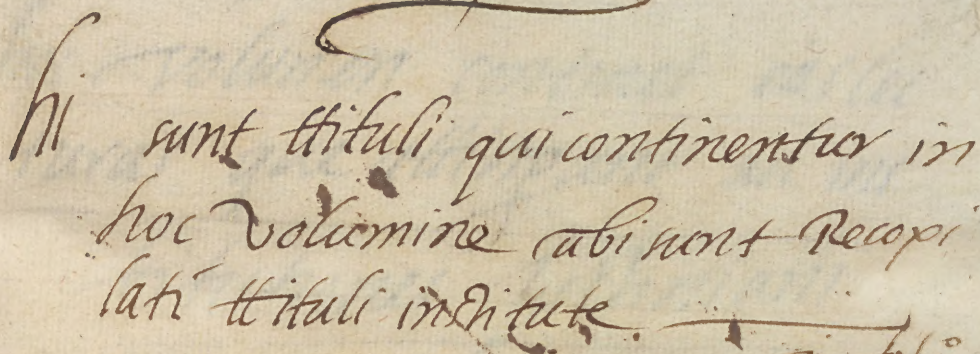 hi sunt ttituli qui continentur in
hoc volumine ubi sunt Recopi
lati ttituli institute